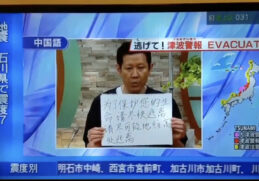 031
中国語
逃げて! 津波警報
EVACUAT
震 石川県で震度7
为了保护您的生
命请尽快逃离
请尽可能地
处逃离
TSUNAMI
震度別
明石市中崎、西宮市宮前町、加古川市加古川町、川